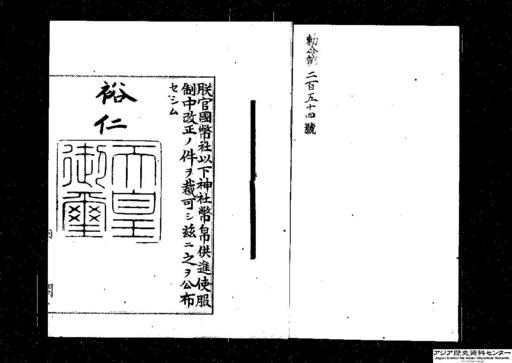 勅令第二百五十四號
朕官國幣社以下神社幣帛供進使服
制中改正ノ件ヲ裁可シ茲ニ之ヲ公布
セシム
裕仁
天皇
御璽
内閣
アジア歴史資料センター
Japan Center for Asian Historical Records